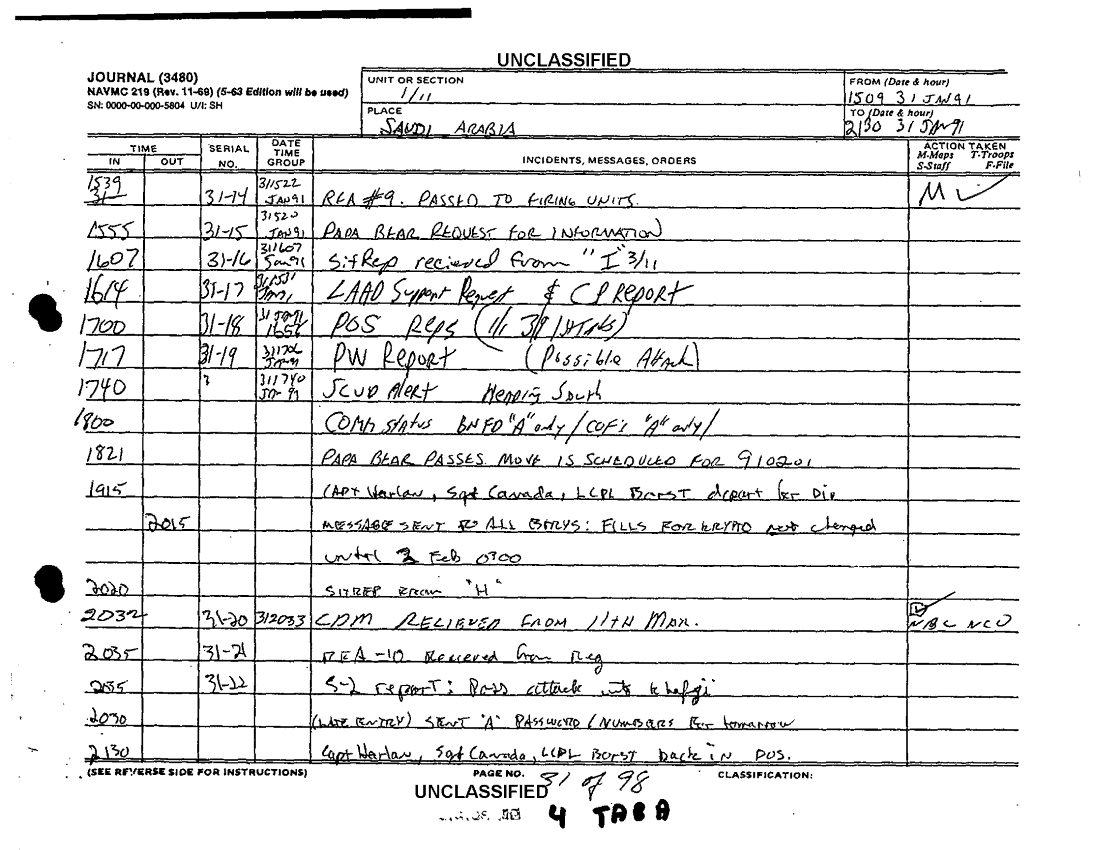 UNCLASSIFIED
JOURNAL (3480)
NAVMC 219 (Rev. 11-69) (5-63 Edition will be used)
SN: 0000-00-000-5804 U/I: SH
UNIT OR SECTION
1/11
PLACE
SAUDI ARABIA
FROM (Date & hour)
1509 31 JAN 91
TO (Date & hour)
2130 31 JAN 91
TIME
IN OUT
SERIAL NO.
DATE TIME GROUP
INCIDENTS, MESSAGES, ORDERS
ACTION TAKEN
M-Maps T-Troops
S-Staff F-File
1539 31-14 311522 JAN 91 REA #9. PASSED TO FIRING UNITS. M
1555 31-15 31520 JAN 91 PAPA BEAR REQUEST FOR INFORMATION
1607 31-16 311607 Jan 91 SitRep recieved from "I" 3/11
1614 31-17 LAAD Support Request & CP REPORT
1700 31-18 31 JAN 91 POS Reps
1717 31-19 PW Report (Possible Attack)
1740 311740 SCUD Alert Heading South
1800 COMM status "A" only / "A" only/
1821 PAPA BEAR PASSES MOVE IS SCHEDULED FOR 910201
1915 CAPT Harlan, Sgt Canada, LCPL Borst depart for Div
2015 MESSAGE SENT TO ALL BTRYS: FILLS FOR KRYPTO not changed
until 2 Feb 0300
2020 SITREP FROM "H"
2032 31-20 312033 CDM RECIEVED FROM 11TH MAR. NBC NCO
2035 31-21 REA-10 Recieved from Reg
31-22 S-2 report: Poss attack into Khafgi
2030 (LATE ENTRY) SENT "A" PASSWORD / NUMBERS for tomorrow
2130 Capt Harlan, Sgt Canada, LCPL Borst back in POS.
(SEE REVERSE SIDE FOR INSTRUCTIONS)
PAGE NO. 31 of 98
CLASSIFICATION:
UNCLASSIFIED
4 TAB A